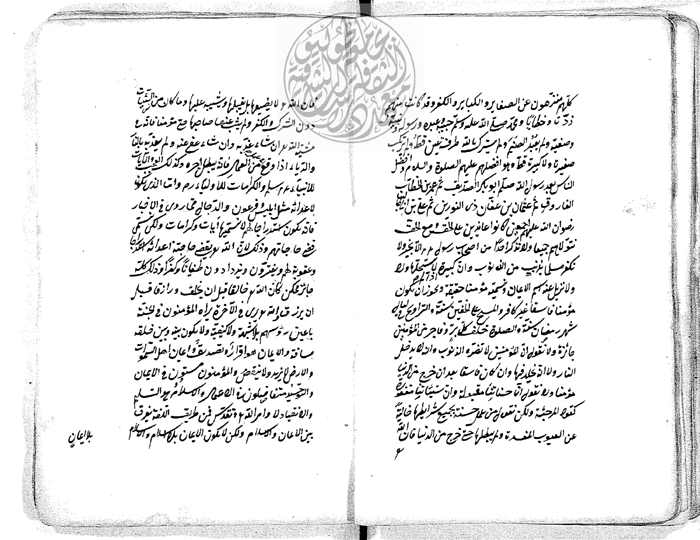 كلهم منزهون عن الصغائر والكبائر والكفر وقد كانت منهم
زلات وخطايا ومحمد صلى الله عليه وسلم حبيبه وعبده ورسوله
وصفيه ولم يعبد الصنم ولم يشرك بالله طرفة عين قط ولم يرتكب
صغيرة ولا كبيرة قط وهو افضلهم عليهم الصلوة والسلام وافضل
الناس بعد رسول الله صلم ابو بكر الصديق ثم عمر بن الخطاب
الفاروق ثم عثمان بن عفان ذى النورين ثم على بن
رضوان الله عليهم اجمعين كانوا على الحق ومع الحق
نتولاهم جميعا ولا نذكر احدا من اصحاب رسول الا بخير ولا
نكفر مسلما بذنب من الذنوب وان كبيرة اذا لم يستحلها
ولا نزيل عنه اسم الايمان ونسميه مؤمنا حقيقة ويجوز ان يكون
مؤمنا فاسقا غير كافر والمسح على الخفين سنة والتراويح فى ليالى
شهر رمضان سنة والصلوة خلف كل بر وفاجر من المؤمنين
جائزة ولا نقول ان المؤمن لا تضره الذنوب وانه لا يدخل
النار ولا انه يخلد فيها وان كان فاسقا بعد ان خرج من الدنيا
مؤمنا ولا نقول ان حسناتنا مقبولة وان سيئاتنا مغفورة
كقول المرجئة ولكن نقول من عمل حسنة بجميع شرائطها خالية
عن العيوب المفسدة ولم يبطلها حتى خرج من الدنيا فان الله
فان الله لا يضيعها بل يقبلها ويثيب عليها وما كان من السيئات
دون الشرك والكفر ولم يتب عنها صاحبها حتى مات مؤمنا فانه فى
مشية الله ان شاء عذبه وان شاء عفى عنه ولم يعذبه بالنار
والرياء اذا وقع فى عمل فانه يبطل اجره وكذلك العجب والايات
للانبياء والكرامات للاولياء واما التى تكون
لاعدائه مثل ابليس وفرعون والدجال مما روى فى الاخبار
فانه يكون لا نسميها ايات وكرامات ولكن نسمى
قضى حاجاتهم وذلك لان الله يقضى حاجة اعدائه
وعقوبة لهم ويغترون ويزدادون طغيانا وكفرا وذلك كله
جائز ممكن كان الله خالقا قبل ان يخلق ورازقا قبل
ان يرزق والله يرى فى الاخرة يراه المؤمنون فى الجنة
باعين رؤسهم بلا شبهة ولا كيفية ولا يكون بينه وبين خلقه
مسافة والايمان هو اقرار وتصديق وايمان اهل السماء
والارض لا يزيد ولا ينقص والمؤمنون مستوون فى الايمان
والتوحيد متفاضلون فى الاعمال والاسلام هو التسليم
والانقياد لاوامر الله فمن طريق اللغة فرق
بين الايمان والاسلام ولكن لا يكون الايمان بلا اسلام والاسلام
بلا ايمان